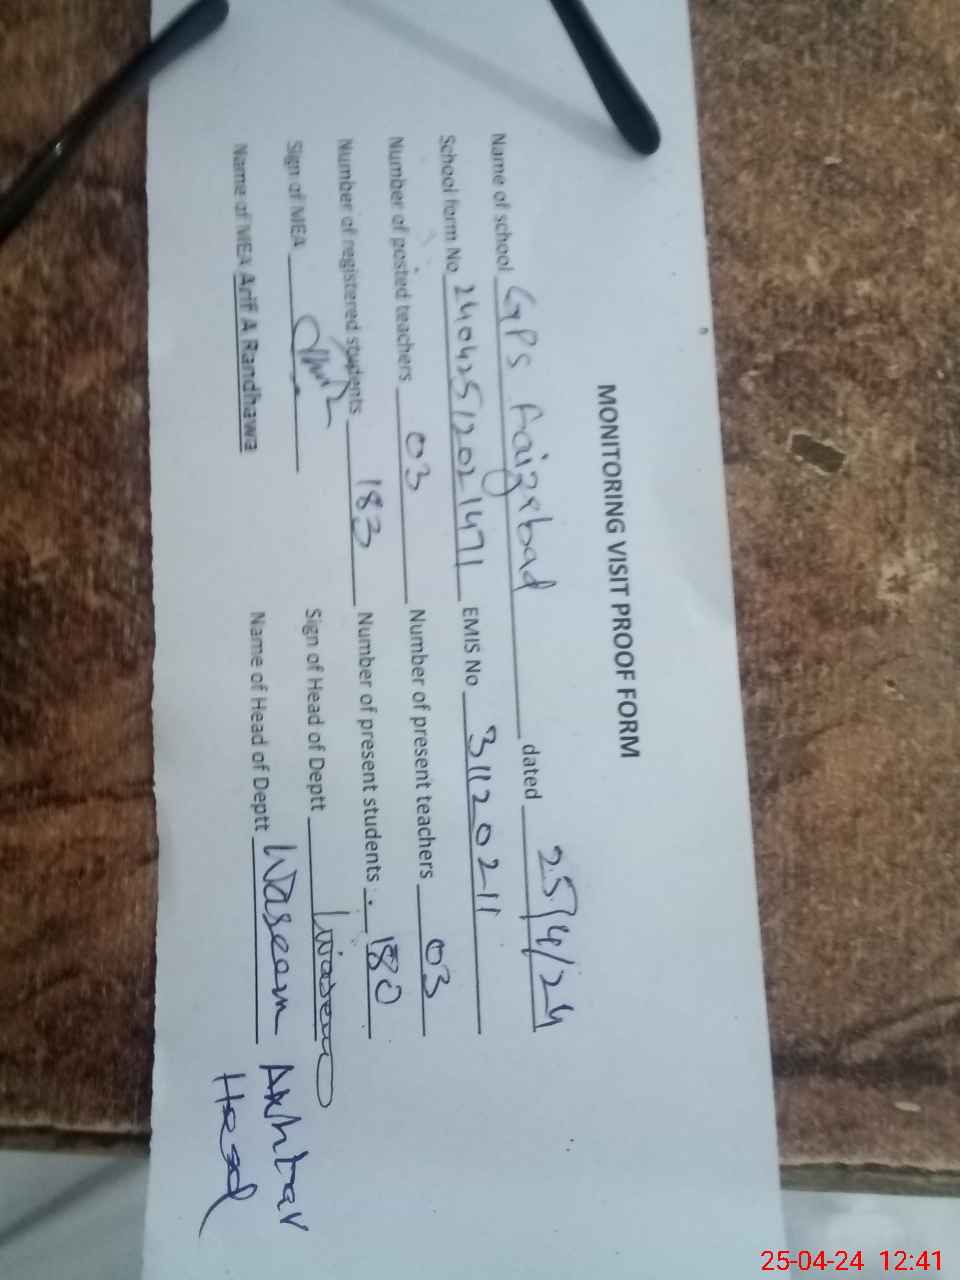 MONITORING VISIT PROOF FORM
Name of school GPS Faizabad dated 25/4/24
School form No 24042512021471 EMIS No 31120211
Number of posted teachers 03 Number of present teachers 03
Number of registered students 183 Number of present students 180
Sign of MEA Sign of Head of Deptt Waseem
Name of MEA Arif A Randhawa Name of Head of Deptt Waseem Akhtar
Head
25-04-24 12:41